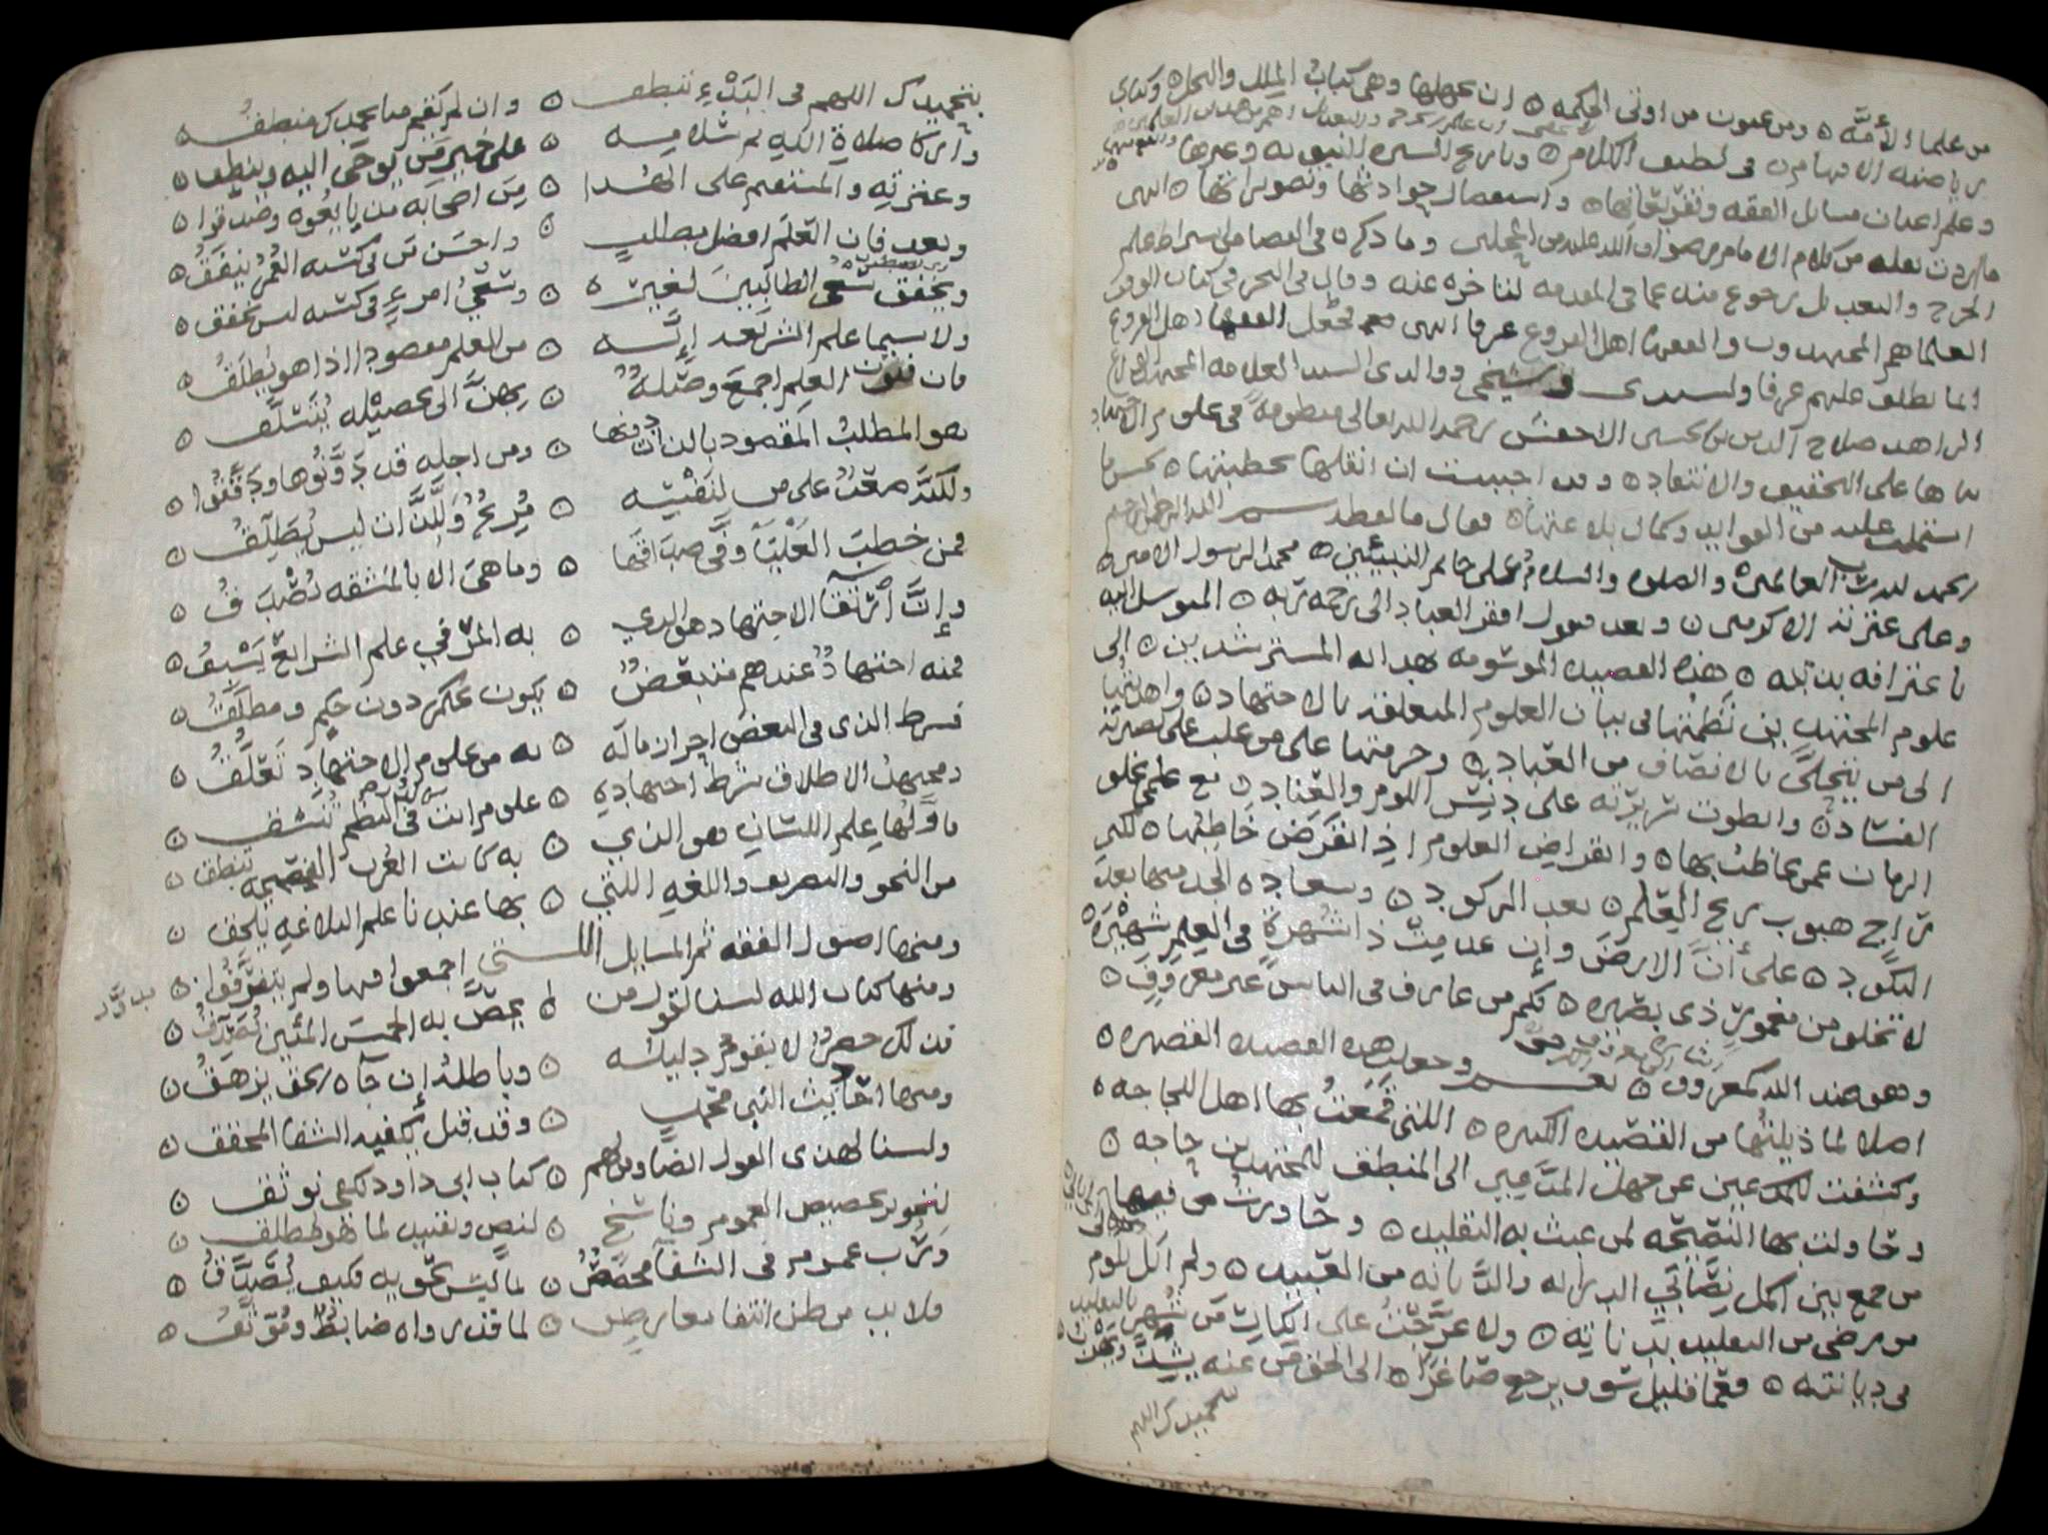 من علما الأمَّه ٥ ومن عيون من اوتى الحكمه ٥ ان يجهلها وهى كتاب الملل والنحل ٥ وكتاب
رياضه الافهام ٥ فى لطيف الكلام ٥ وتاريخ السيره النبويه وغيرها
وعلم اعداد مسايل الفقه وتفريعاتها ٥ واستعمال حوادثها وتصويراتها ٥ انتهى
ما اردت نقله من كلام الامام رضوان الله عليه من المجلس وما ذكره فى
الجرح والتعديل رجوع منه عما فى المقدمه لتاخره عنه وقال فى البحر فى كتاب الوقف
العلما هم المجتهدون والفقها اهل الفروع عرفا انتهى فجعل الفقها اهل الفروع
انما يطلق عليهم عرفا ولسيدى وشيخى ووالدى السيد العلامه المجتهد
الزاهد صلاح الدين بن الحسين الاخفش رحمه الله تعالى منظومة فى علوم الاجتهاد
بناها على التحقيق والانتقاد ٥ وقد احببت ان انقلها بخطبتها ٥ لحسن ما
اشتملت عليه من الفوايد وكمال بلاغتها ٥ فقال ما لفظه بسم الله الرحمن الرحيم
الحمد لله رب العالمين ٥ والصلوه والسلام على خاتم النبيئين ٥ محمد الرسول الامين ٥
وعلى عترته الاكرمين ٥ وبعد فيقول افقر العباد الى رحمه ربه ٥ المتوسل اليه
باعترافه بذنبه ٥ هذه القصيده الموسومه بهدايه المسترشدين ٥ الى
علوم المجتهدين نظمتها فى بيان العلوم المتعلقه بالاجتهاد ٥ واهديتها
الى من يتحلَّى بالانصاف من العباد ٥ وحرمتها على من غلب على بصيرته
الفساد ٥ وانطوت سريرته على دنس اللوم والعناد ٥ مع علمى بخلو
الزمان عمن يخاطب بها ٥ وانقراض العلوم اذ انقرض خاطبها ٥ لكنى
راجٍ هبوب ريح العلم ٥ بعد الركود ٥ وسعاده الجد منها بعد
النكود ٥ على أنَّ الارض وإن عدمت ذا شهرةٍ فى العلم شهيرة ٥
لا تخلو من مغمورٍ ذى بصيره ٥ فكم من عارف فى الناس غير معروفٍ ٥
وهو عند الله كمعروف ٥ نعم وجعلت هذه القصيده القصيره ٥
اصلا لما ذيلتها من القصيده الكبيره ٥ اللتى قمعتُ بها اهل اللجاجه ٥
وكشفت للمدعين عن جهل المدعين الى المنطق للمجتهدين حاجه ٥
وحاولت بها النصيحه لمن عبث به التقليد ٥ وحاورت من فيها
من جمع بين اكمل نصابَي الدرايه والديانه من العبيد ٥ ولم اكل للوم
من رضى من التقليد بدناته ٥ ولا عرَّجتُ على انكارِ من شهر بالتقليد
فى ديانته ٥ فعمّا قليل سوف يرجع صاغرًا ٥ الى الحق من عنه يشذّ ويجنف ٥
بتحميدك اللهم
بتحميدك اللهم فى البدْءِ ننطق ٥ وان لم نقم مما بحمدك منطق ٥
وأزكا صلاة الله ثم سلامه ٥ على خير من يُوحى اليه وينطق ٥
وعترته والمستقيم على الهدا ٥ مِن اصحابه من بايعوه وصدقوا ٥
وبعد فان العلم افضل مطلبٍ ٥ واحسن من فى كسبه العمر ينفقُ ٥
ويخفق سعى الطالبين لغيره ٥ وسعىُ امرءٍ فى كسبه ليس يخفق ٥
ولا سيما علم الشريعه إنَّه ٥ من العلم مقصود اذا هو يطلقُ ٥
فان فنون العلم اجمع وصلةٌ ٥ بهنَّ الى تحصيله يُتسلَّق ٥
هو المطلب المقصود بالذات دونها ٥ ومن اجلهِ قد دَوَّنُوها ودقَّقُوا ٥
ولكنه صعبٌ على من لنفسه ٥ مُريحٌ وللَّذات ليس يُطلّقُ ٥
فمن خطب العليا وفى صداقها ٥ وما هى الا بالمشقه تُصْدَقُ ٥
وإنَّ ارتقآ الاجتهاد هو الذي ٥ به المرْ فى علم الشرايع يَسْبقُ ٥
فمنه اجتهادٌ عندهم متبعّضٌ ٥ يكون بحكم دون حكمٍ ومطلقُ ٥
فشرط الذى فى البعض احراز ماله ٥ به من علوم الاجتهادِ تعلّقُ ٥
ومجتهد الاطلاق شرط اجتهادهِ ٥ علوم اتت فى النظم تُنسق ٥
فاوّلها علم اللسانِ هو الذي ٥ به كانت العُرب الفصيحه تنطق ٥
من النحو والتصريف واللغه اللتي ٥ بها عندنا علم البلاغه يلحق ٥
ومنها اصول الفقه ثم المسايل اللتى اجمعوا فيها ولم يتفرّقُوا ٥
ومنها كتاب الله لسنا نقول من ٥ يخصّ به الخمس المئين نُصدّقُ ٥
فذلك حصرٌ لا يقوم دليله ٥ وباطله إن جآه الحق يزهقُ ٥
ومنها احاديث النبى محمدٍ ٥ وقد قيل يكفيه الشفا المحقق ٥
ولسنا لهذى القول ايضا ومن لهم ٥ كتاب ابى داود يكفى نوثق ٥
لتجويز تخصيص العموم وناسخٍ ٥ لنصٍ وتقييد لما هو مطلق ٥
ورُبَّ عموم فى الشفا مخصصٌ ٥ لما ليس يحويه فكيف يُصدَّقُ ٥
فلا بد من ظن انتفا معارضٍ ٥ لما قد رواه ضابطٌ وموثّقُ ٥